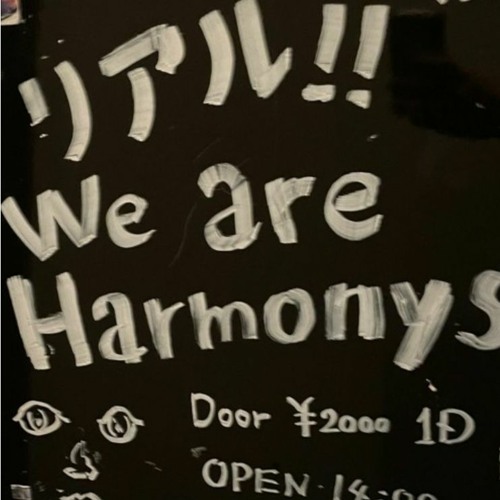 リアル!!
We are
Harmonys
Door ¥2000 1D
OPEN